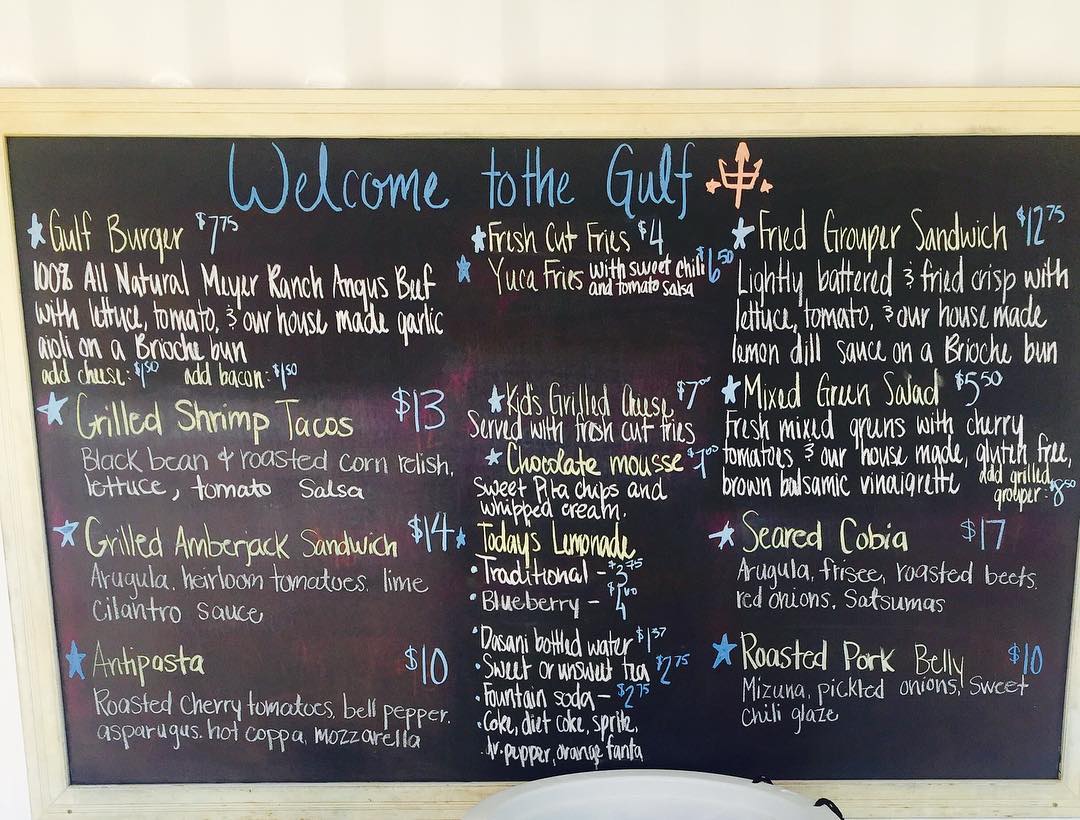 Welcome to the Gulf
Gulf Burger $7.75
100% All Natural Meyer Ranch Angus Beef
with lettuce, tomato, & our house made garlic
aioli on a Brioche bun
add cheese: $1.50 add bacon: $1.50
Grilled Shrimp Tacos $13
Black bean & roasted corn relish,
lettuce, tomato Salsa
Grilled Amberjack Sandwich $14
Arugula, heirloom tomatoes, lime
cilantro sauce
Antipasta $10
Roasted Cherry tomatoes, bell pepper,
asparagus, hot coppa, mozzarella
Fresh Cut Fries $4
Yuca Fries with sweet chili $6.50
and tomato salsa
Kid's Grilled Cheese $7.00
Served with fresh cut fries
Chocolate mousse
Sweet Pita chips and
whipped cream.
Today's Lemonade
Traditional - $3.75
Blueberry - $4.00
Dasani bottled water $1.37
Sweet or unsweet tea $2.75
Fountain soda - $2.75
Coke, diet coke, sprite,
dr. pepper, orange fanta
Fried Grouper Sandwich $12.75
Lightly battered & fried crisp with
lettuce, tomato, & our house made
lemon dill sauce on a Brioche bun
Mixed Green Salad $5.50
Fresh mixed greens with cherry
tomatoes & our house made, gluten free,
brown balsamic vinaigrette add grilled
grouper: $8.50
Seared Cobia $17
Arugula, frisee, roasted beets,
red onions, Satsumas
Roasted Pork Belly $10
Mizuna, pickled onions, Sweet
chili glaze